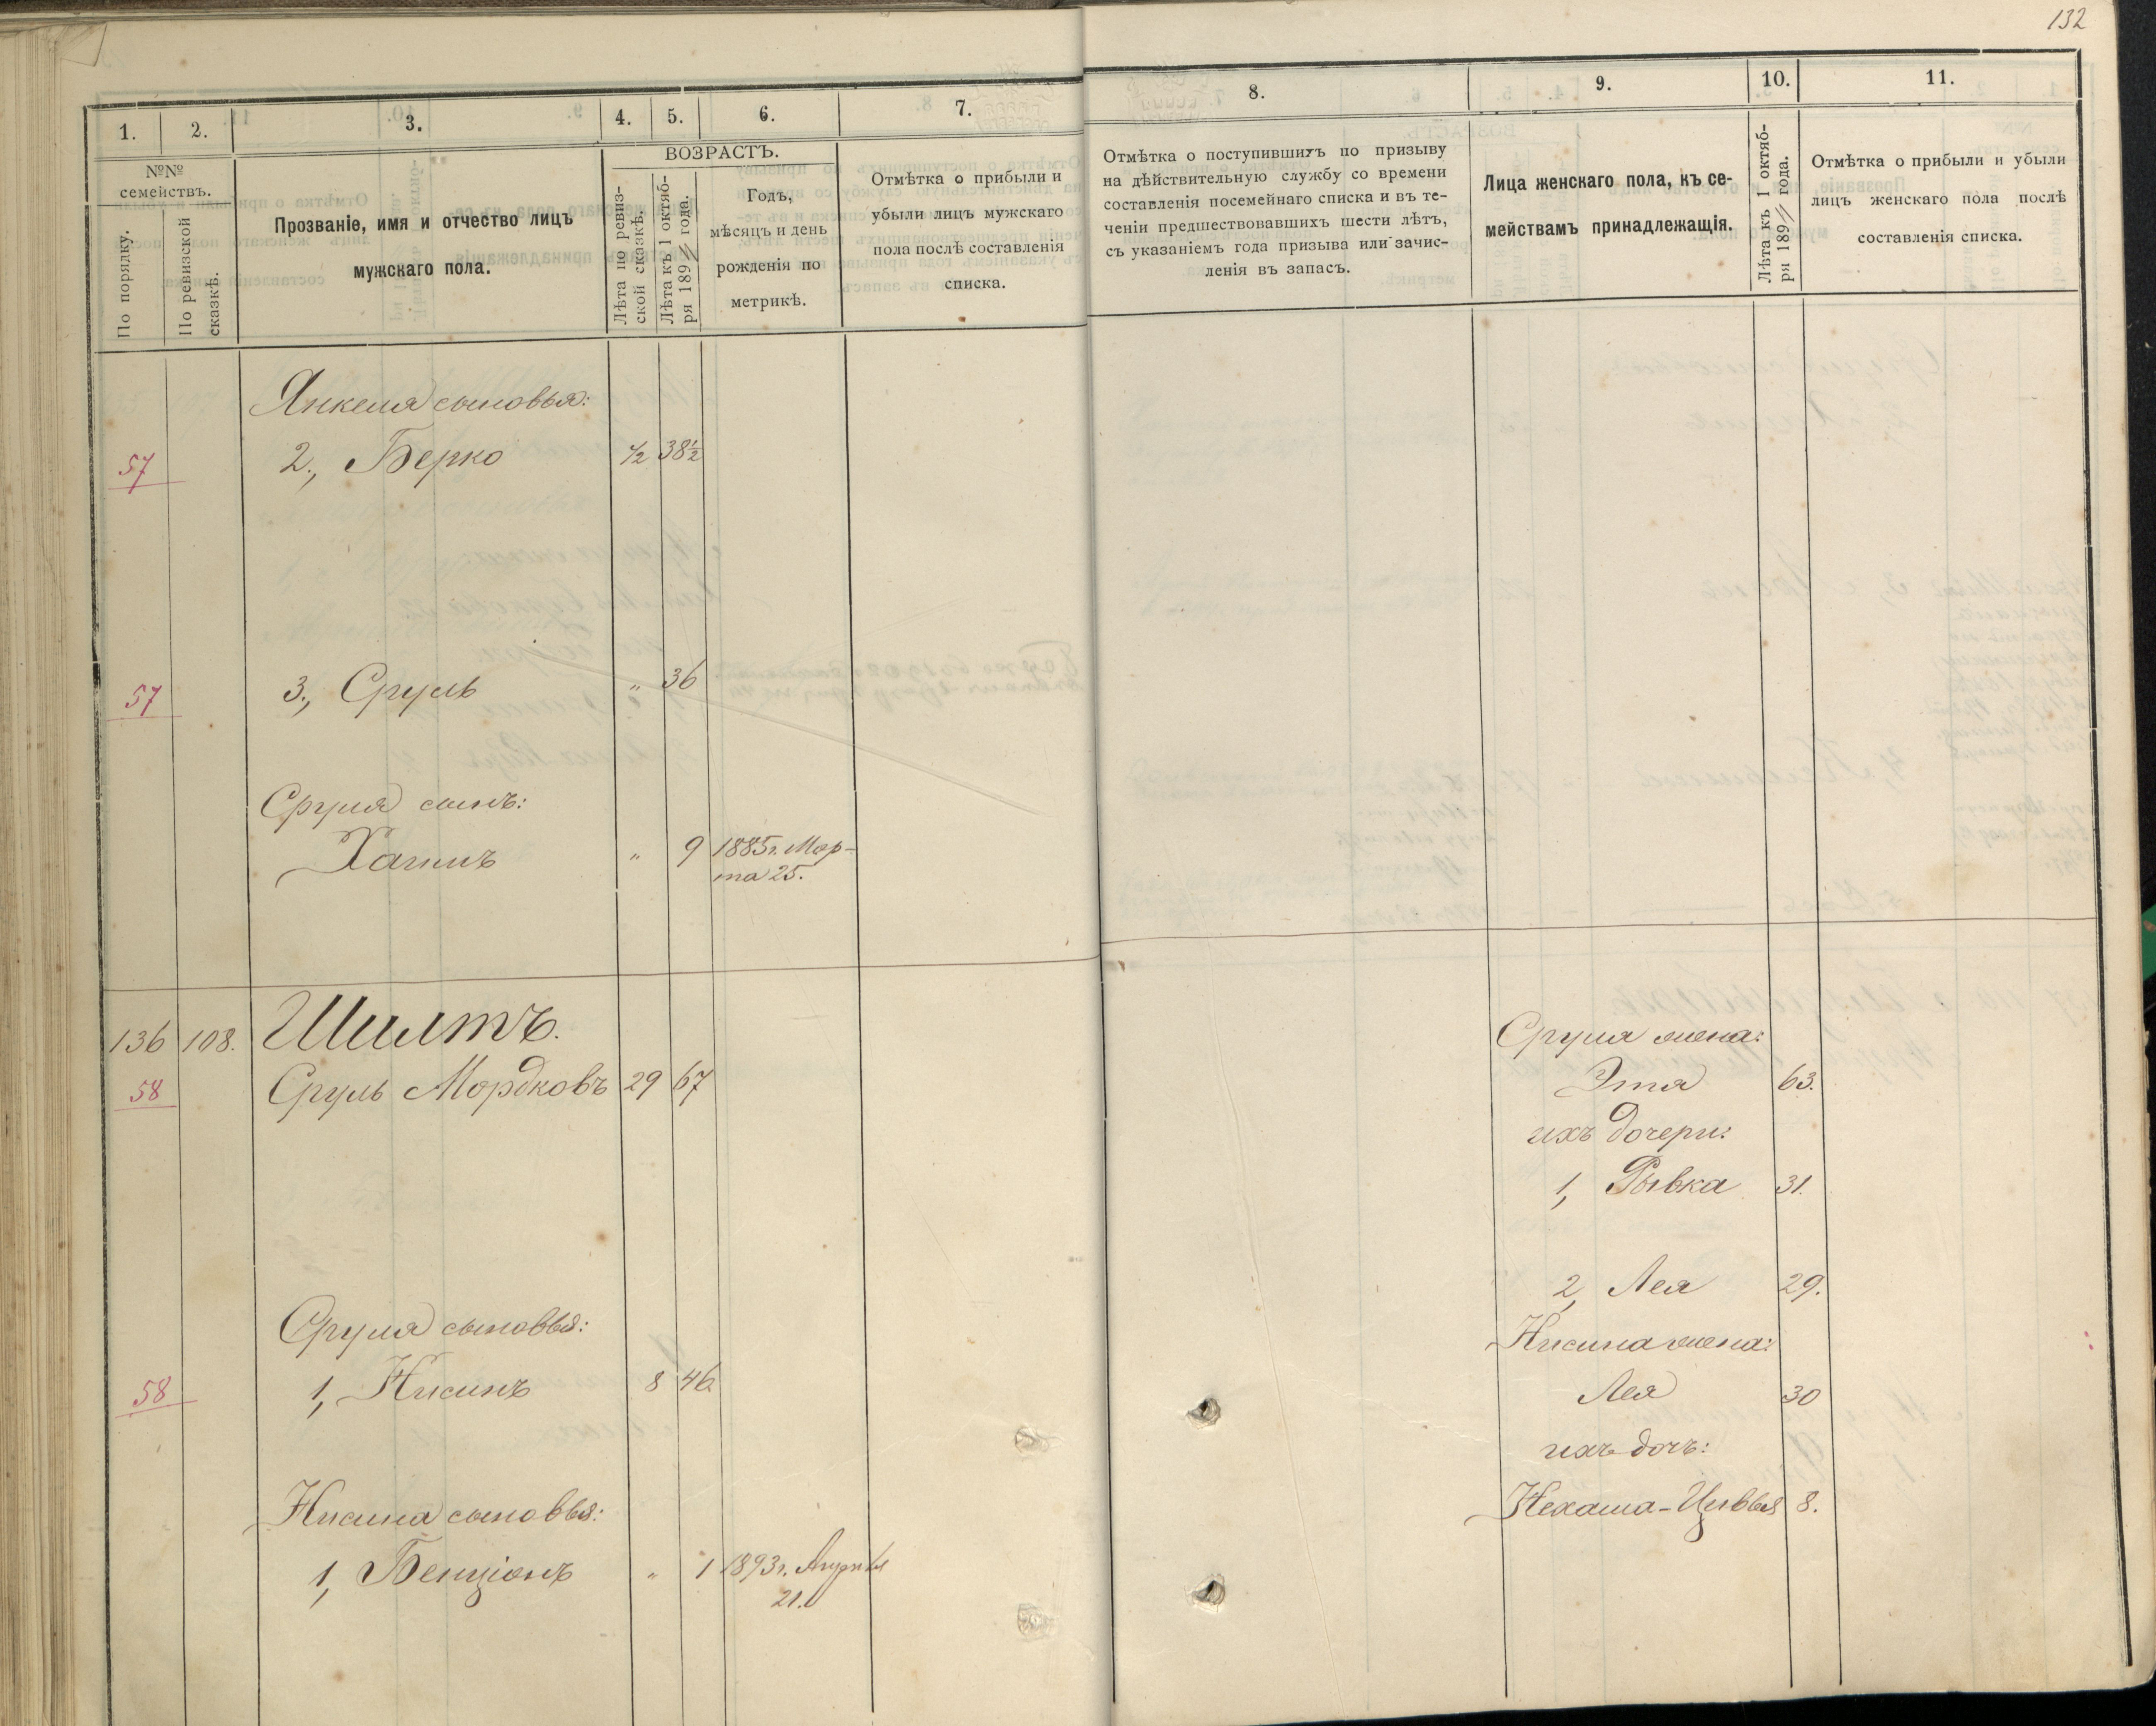 132
1.
2.
3.
4.
5.
6.
7.
8.
9.
10.
11.
№№
семействъ.
По порядку.
По ревизской
сказкѣ.
Прозваніе, имя и отчество лицъ
мужскаго пола.
ВОЗРАСТЪ.
Лѣта по ревиз-
ской сказкѣ.
Лѣта къ 1 октяб-
ря 189 года.
Годъ,
мѣсяцъ и день
рожденія по
метрикѣ.
Отмѣтка о прибыли и
убыли лицъ мужскаго
пола послѣ составленія
списка.
Отмѣтка о поступившихъ по призыву
на дѣйствительную службу со времени
составленія посемейнаго списка и въ те-
ченіи предшествовавшихъ шести лѣтъ,
съ указаніемъ года призыва или зачис-
ленія въ запасъ.
Лица женскаго пола, къ се-
мействамъ принадлежащія.
Лѣта къ 1 октяб-
ря 189 года.
Отмѣтка о прибыли и убыли
лицъ женскаго пола послѣ
составленія списка.
Янкеля сыновья:
57 2., Берко ½ 38½
57 3., Сруль " 36
Сруля сынъ:
Хаимъ " 9 1885 г. Мар-
та 25.
136 108. Шилтъ.
58 Сруль Мордковъ 29 67
Сруля жена:
Этя 63.
ихъ дочери:
1, Рывка 31.
2, Лея 29.
Сруля сыновья:
58 1, Нисинъ 8 46
Нисина жена:
Лея 30
ихъ дочь:
Нехама-Цивья 8.
Нисина сыновья:
1, Бенціонъ " 1 1893 г. Апрѣля
21.